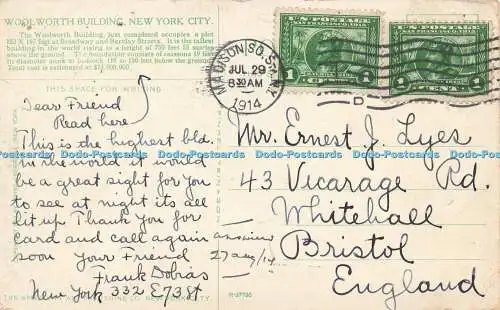 WOOLWORTH BUILDING, NEW YORK CITY.
The Woolworth Building, just completed occupies a plot
152 X 197 feet at Broadway and Barclay Streets. It is the tallest
building in the world rising to a height of 750 feet 55 stories
above the ground. The foundation consists of caissons 19 feet
in diameter sunk to bedrock 110 to 130 feet below the ground
Total cost is estimated at $11,000,000.
THIS SPACE FOR WRITING
Dear Friend
Read here
This is the highest bld.
in the world it would
be a great sight for you
to see at night its all
lit up Thank you for
card and call again
soon Your Friend
Frank Dobias
New York 332 E 73 St
MADISON SQ. STA. N.Y.
JUL 29
8 30 AM
1914
D
U.S. POSTAGE
1 CENT 1
U.S. POSTAGE
1 CENT 1
Mr. Ernest J. Lyes
43 Vicarage Rd.
Whitehall
Bristol
England
answered
27 aug/14
NEW YORK CITY.
Dodo-Postcards Dodo-Postcards Dodo-Postcards Dodo-Postcards Dodo-Postcards